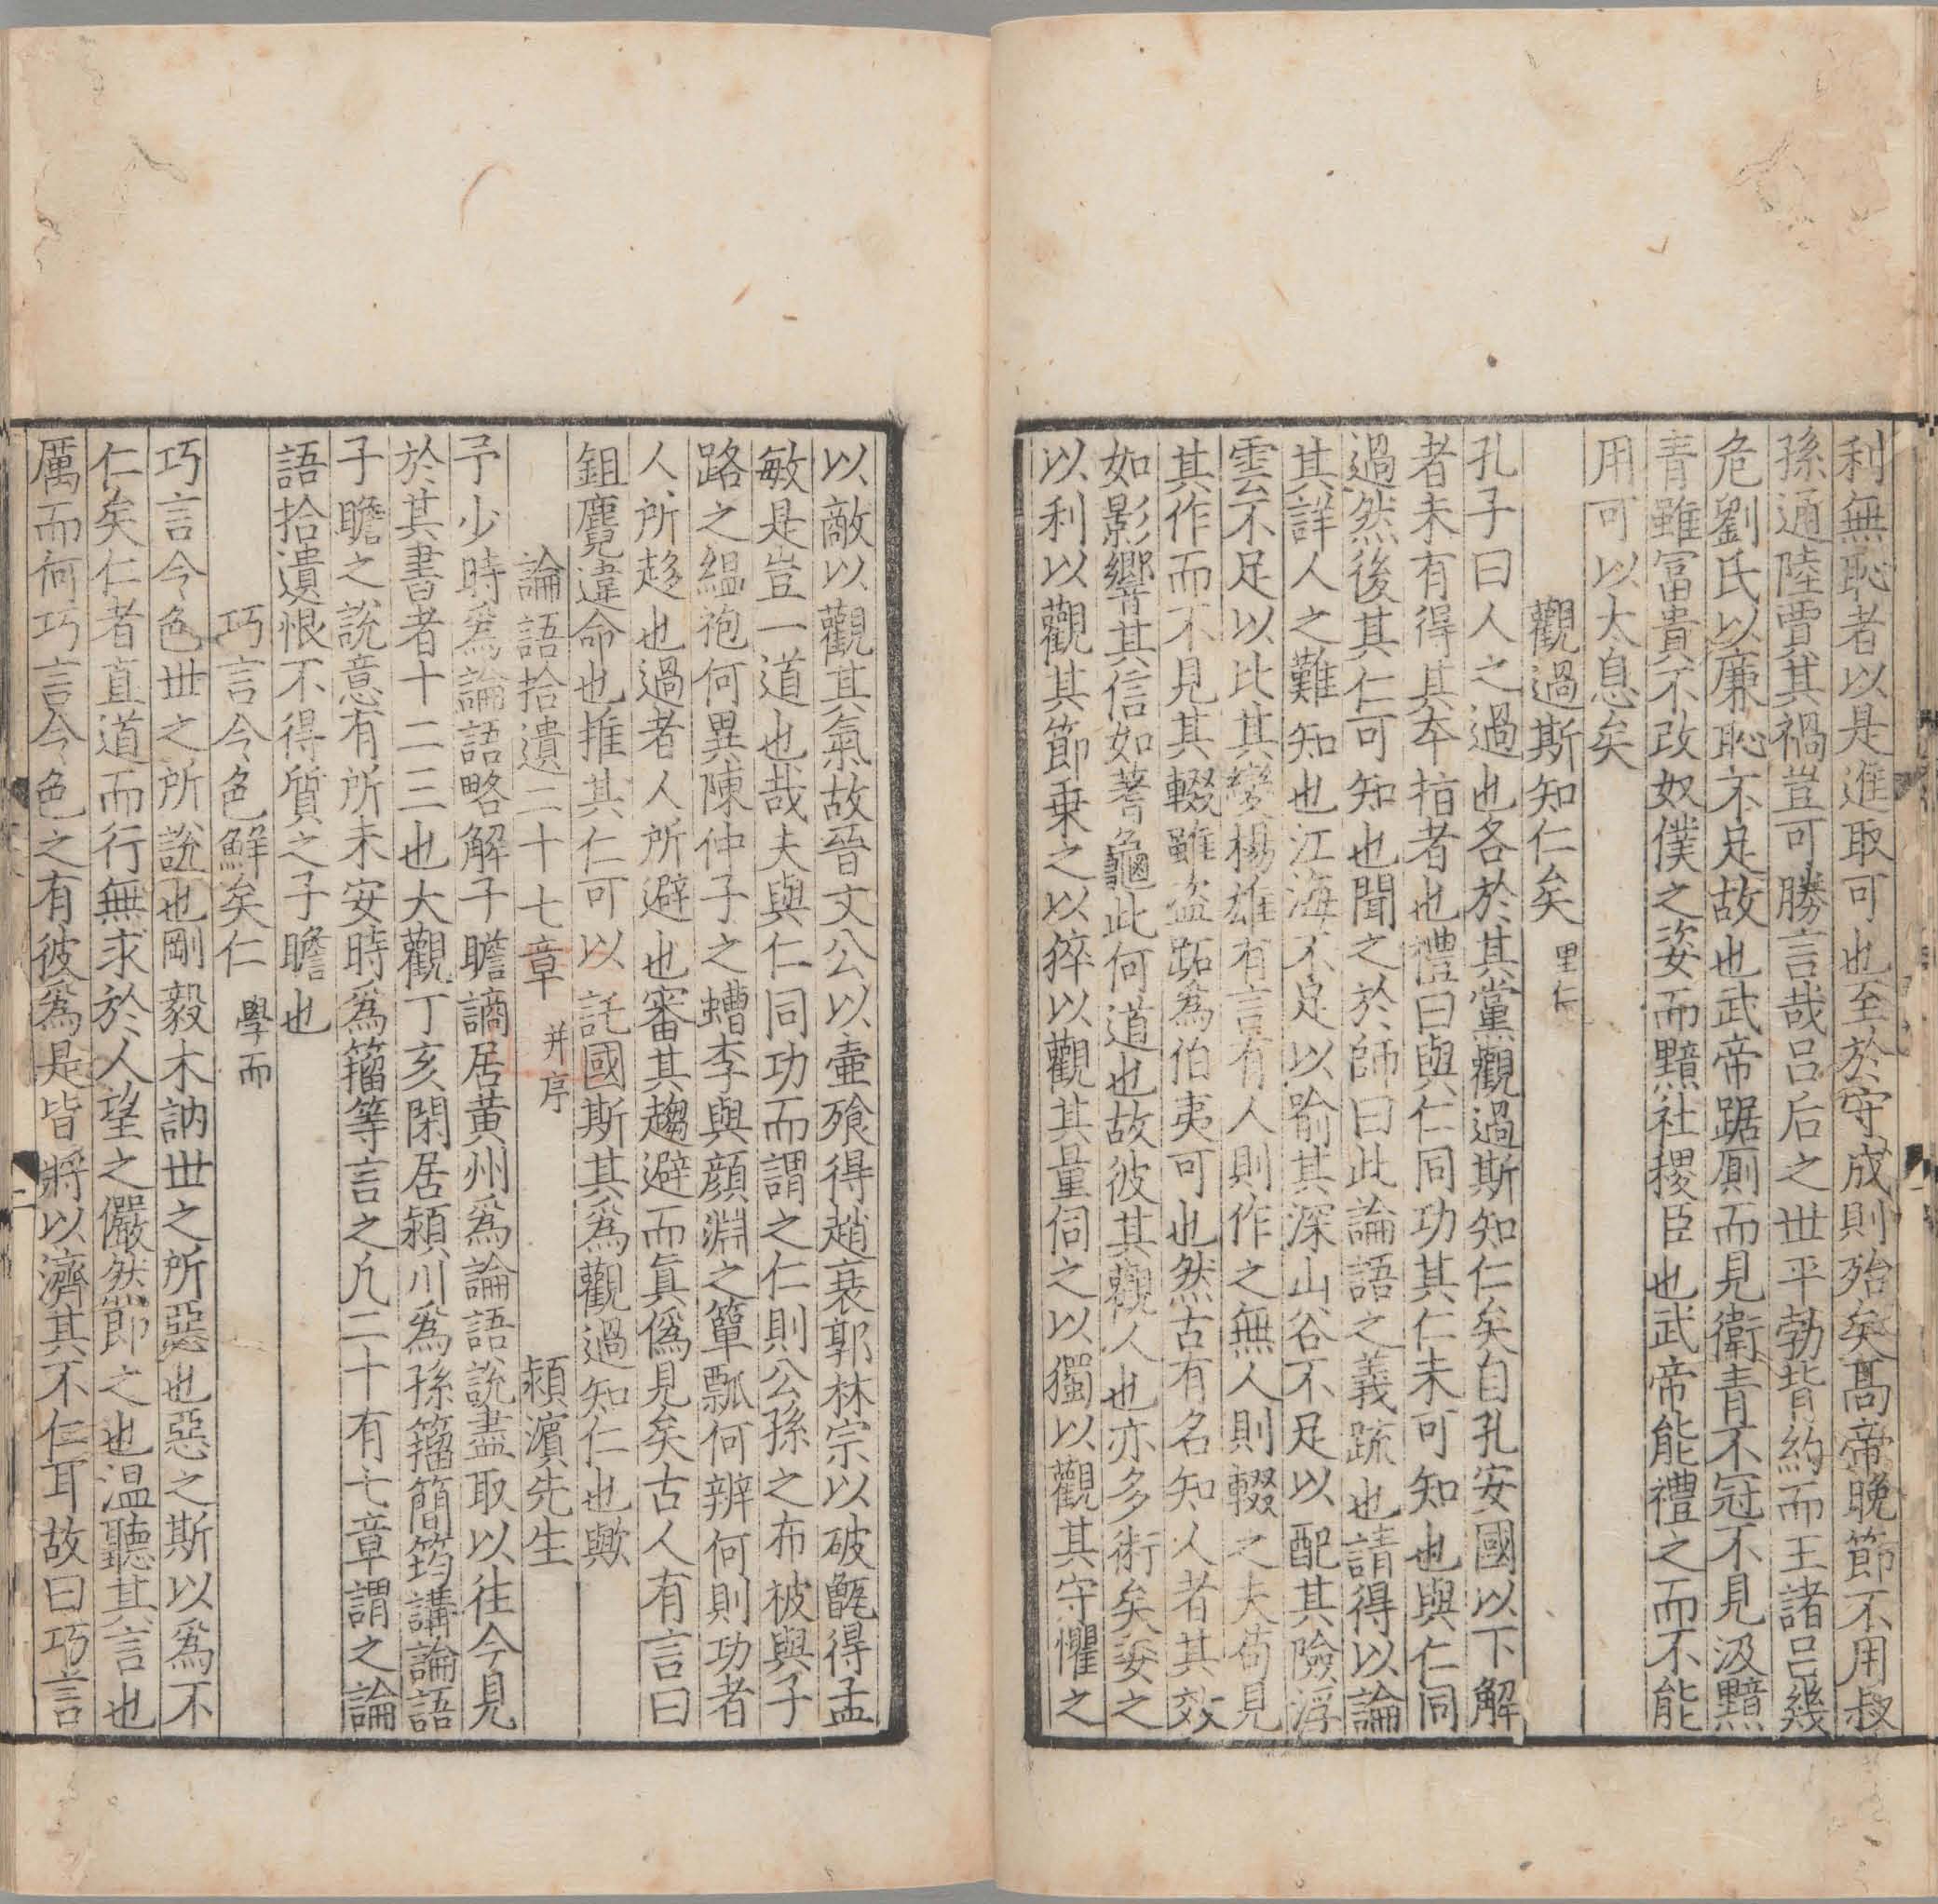 利無恥者以是進取可也至於守成則殆矣髙帝晚節不用叔
孫通陸賈其禍豈可勝言哉呂后之丗平勃背約而王諸呂幾
危劉氏以廉恥不足故也武帝踞厠而見衛青不冠不見汲黯
青雖富貴不改奴僕之姿而黯社稷臣也武帝能禮之而不能
用可以太息矣
觀過斯知仁矣 里仁
孔子曰人之過也各於其黨觀過斯知仁矣自孔安國以下解
者未有得其本指者也禮曰與仁同功其仁未可知也與仁同
過然後其仁可知也聞之於師曰此論語之義疏也請得以論
其詳人之難知也江海不足以喻其深山谷不足以配其險浮
雲不足以比其變楊雄有言有人則作之無人則輟之夫苟見
其作而不見其輟雖盗跖為伯夷可也然古有名知人者其效
如影響其信如蓍龜此何道也故彼其觀人也亦多術矣委之
以利以觀其節乗之以猝以觀其量伺之以獨以觀其守懼之
以敵以觀其氣故晉文公以壷飱得趙衰郭林宗以破甑得孟
敏是豈一道也哉夫與仁同功而謂之仁則公孫之布被與子
路之緼袍何異陳仲子之螬李與顔淵之簞瓢何辨何則功者
人所趍也過者人所避也審其趨避而真僞見矣古人有言曰
鉏麑違命也推其仁可以託國斯其為觀過知仁也歟
論語拾遺二十七章 并序 潁濵先生
予少時爲論語略解子瞻謫居黄州爲論語説盡取以往今見
於其書者十二三也大觀丁亥閑居潁川爲孫籀簡筠講論語
子瞻之説意有所未安時爲籀等言之凢二十有七章謂之論
語拾遺恨不得質之子瞻也
巧言令色鮮矣仁 學而
巧言令色丗之所説也剛毅木訥丗之所惡也惡之斯以爲不
仁矣仁者直道而行無求於人望之儼然即之也温聽其言也
厲而何巧言令色之有彼爲是皆將以濟其不仁耳故曰巧言